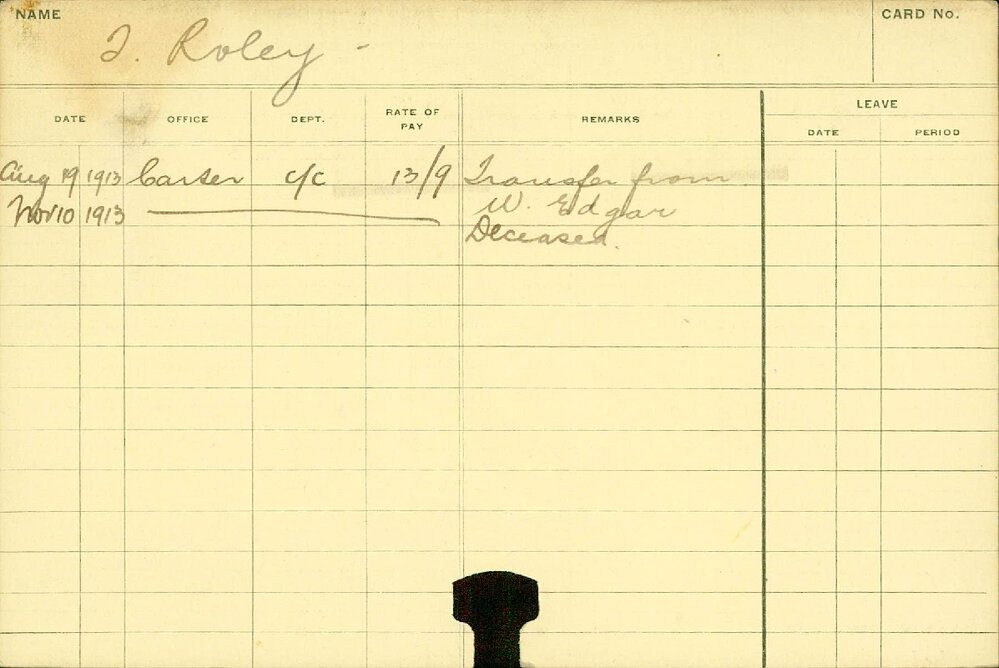 NAME
CARD No.
J. Roley -
DATE OFFICE DEPT. RATE OF PAY REMARKS LEAVE
DATE PERIOD
Aug 19 1913 Carter c/c 13/9 Transfer from
W. Edgar
Nov 10 1913 Deceased.